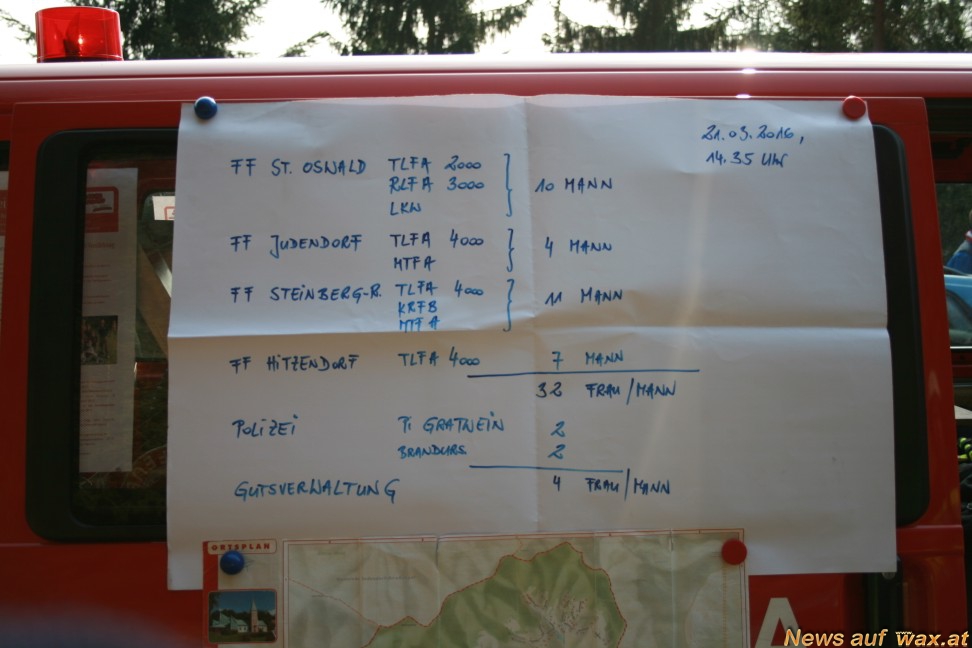 21.03.2016,
14.35 Uhr
FF ST. OSWALD TLFA 2000
RLFA 3000 10 MANN
LKW
FF JUDENDORF TLFA 4000 4 MANN
MTFA
FF STEINBERG-R. TLFA 4000 11 MANN
KRFB
MTFA
FF HITZENDORF TLFA 4000 7 MANN
32 FRAU/MANN
POLIZEI PI GRATWEIN 2
BRANDURS. 2
4 FRAU/MANN
GUTSVERWALTUNG
ORTSPLAN
A
News auf wax.at